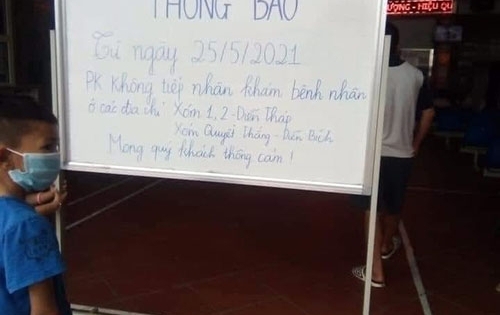 THÔNG BÁO
ƯỢNG - HIỆU QU
Từ ngày 25/5/2021
PK Không tiếp nhân khám bênh nhân
ở các địa chỉ Xóm 1, 2 - Diễn Tháp
Xóm Quyết Thắng - Diễn Bích
Mong quý khách thông cảm !